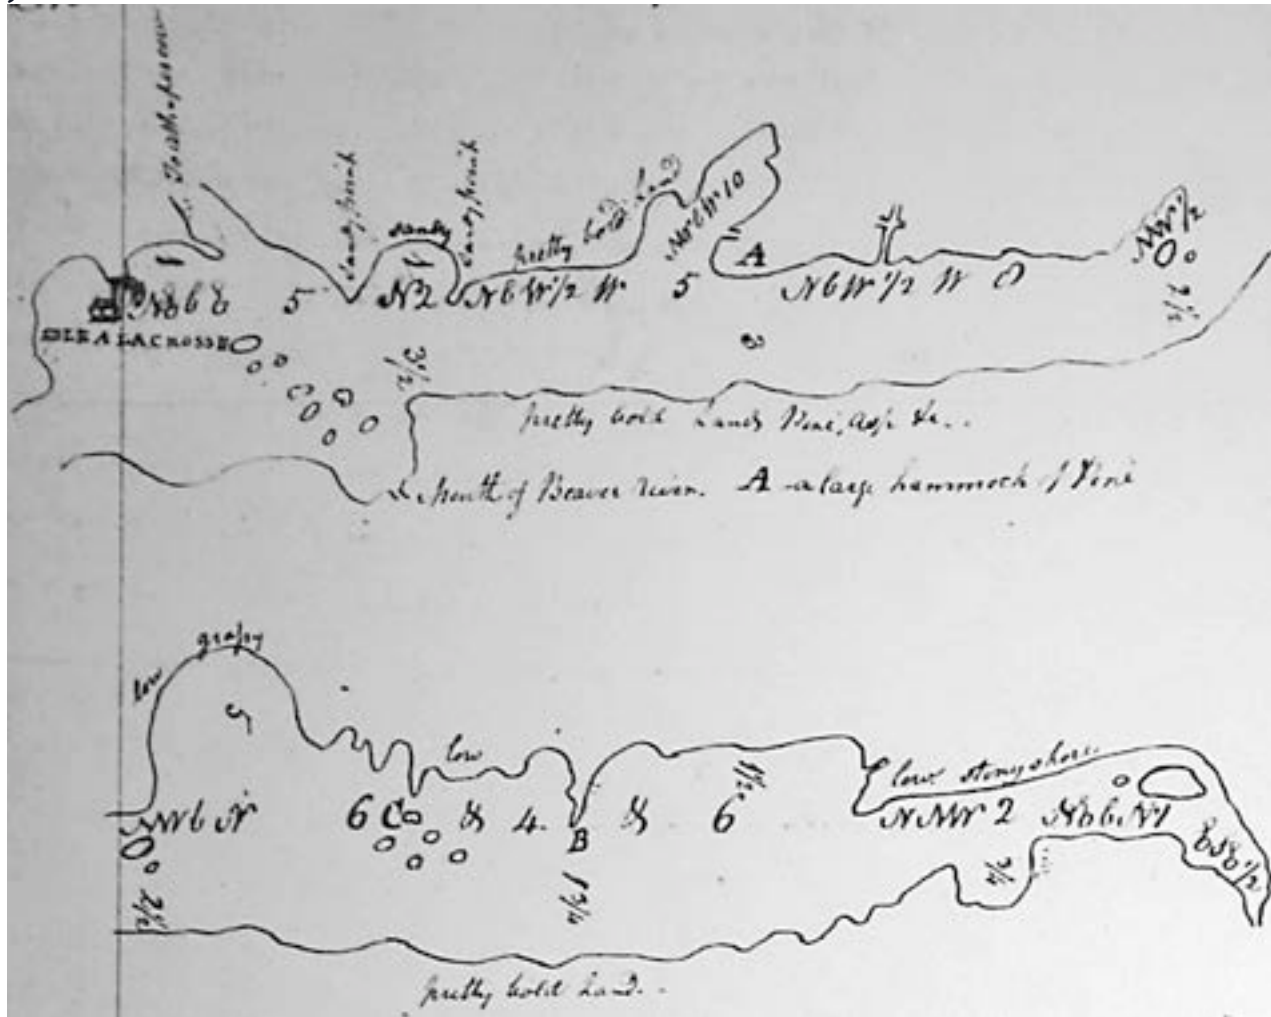 sandy point
sandy
sandy point
pretty bold land
NW b W 10
A
NW 1/2
1
NE b E
5
1
N 2
N b W 1/2 W
5
N b W 1/2 W
8
ISLE A LA CROSSE
3 1/2
3
2 1/2
pretty bold Lands Pine, Asp &c..
Mouth of Beaver river. A a large hammock of Pine
grassy
low
5
low
1 1/2
low stony shore
NW b N
6
C
E
4
B
E
6
NNW 2
NE b N 1
E S E 1/2
2 1/2
1 3/4
3/4
pretty bold Land..